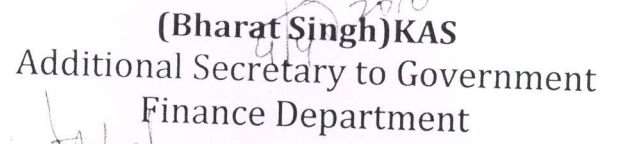 (Bharat Singh)KAS
Additional Secretary to Government
Finance Department